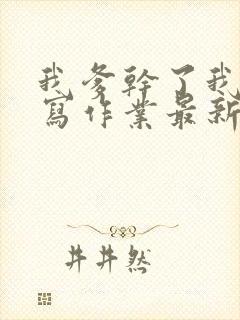 我爹幹了我
寫作業最新
井井然